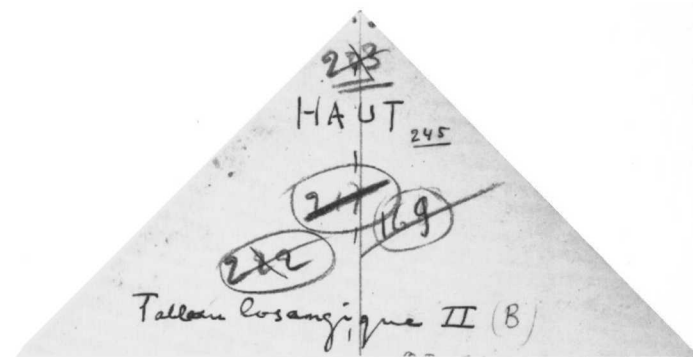 HAUT
245
169
232
Tableau losangique II (B)